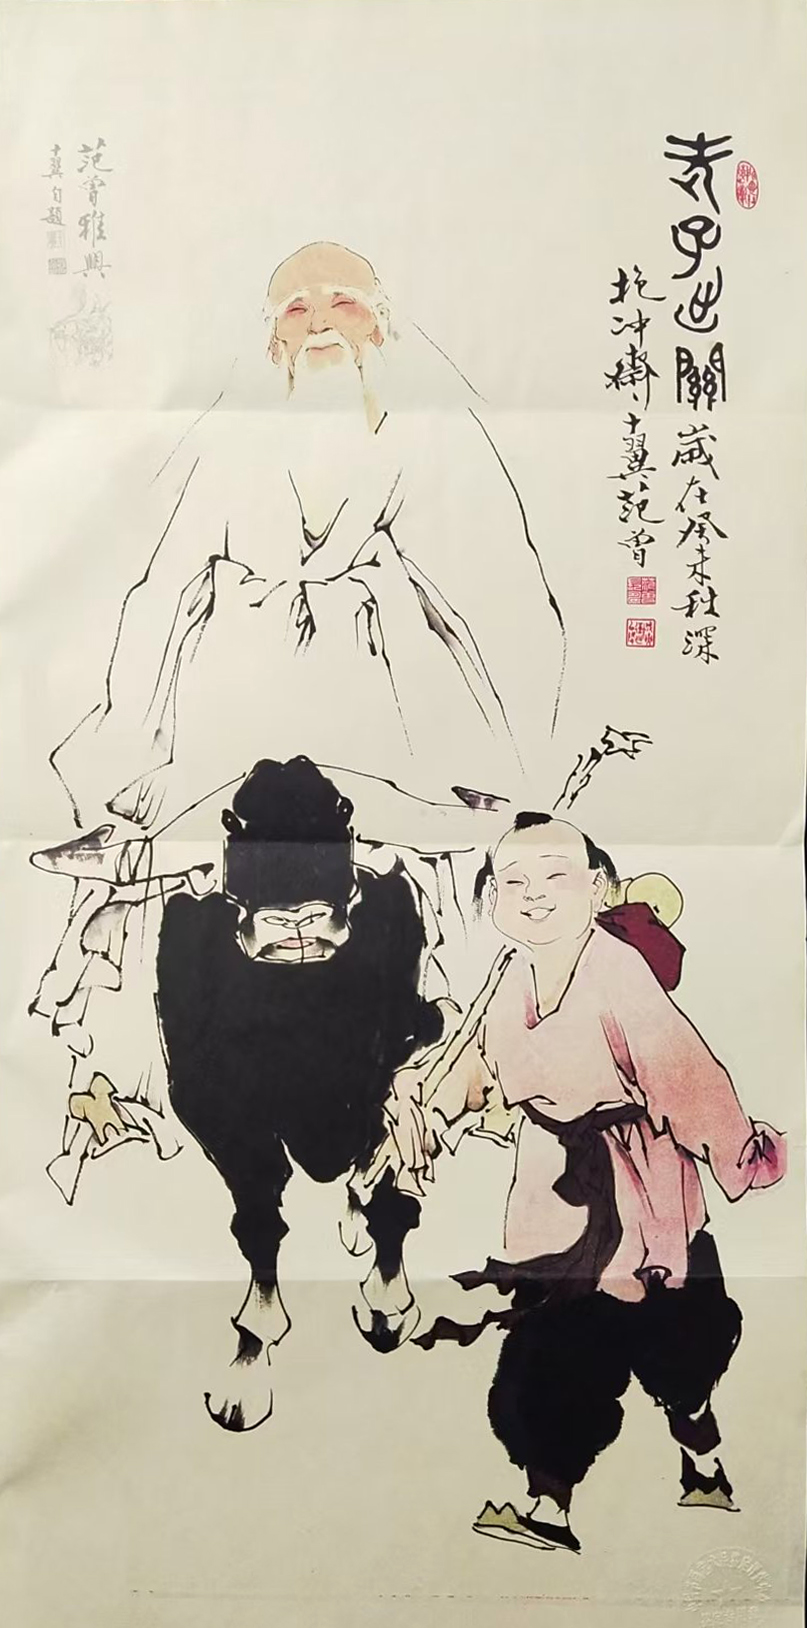 老子出關
歲在癸未秋深
抱冲齋十翼范曾
范曾雅興
十翼自題